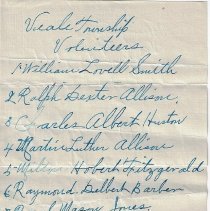 Veale Township
Volunteers
1 William Lovell Smith
2 Ralph Dexter Allison,
3 Charles Albert Huston
4 Martin Luther Allison
5 Hobert Fitzgerald
6 Raymond Delbert Barber
7 Mason Jones